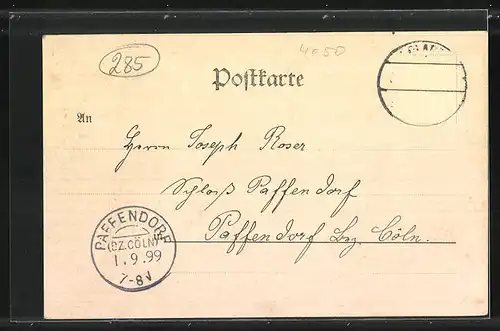 285
4050
Postkarte
An
Herrn Joseph Roser
Schloß Paffendorf
Paffendorf Bz. Cöln.
PAFFENDORF
(BZ.CÖLN)
1.9.99
7-8V